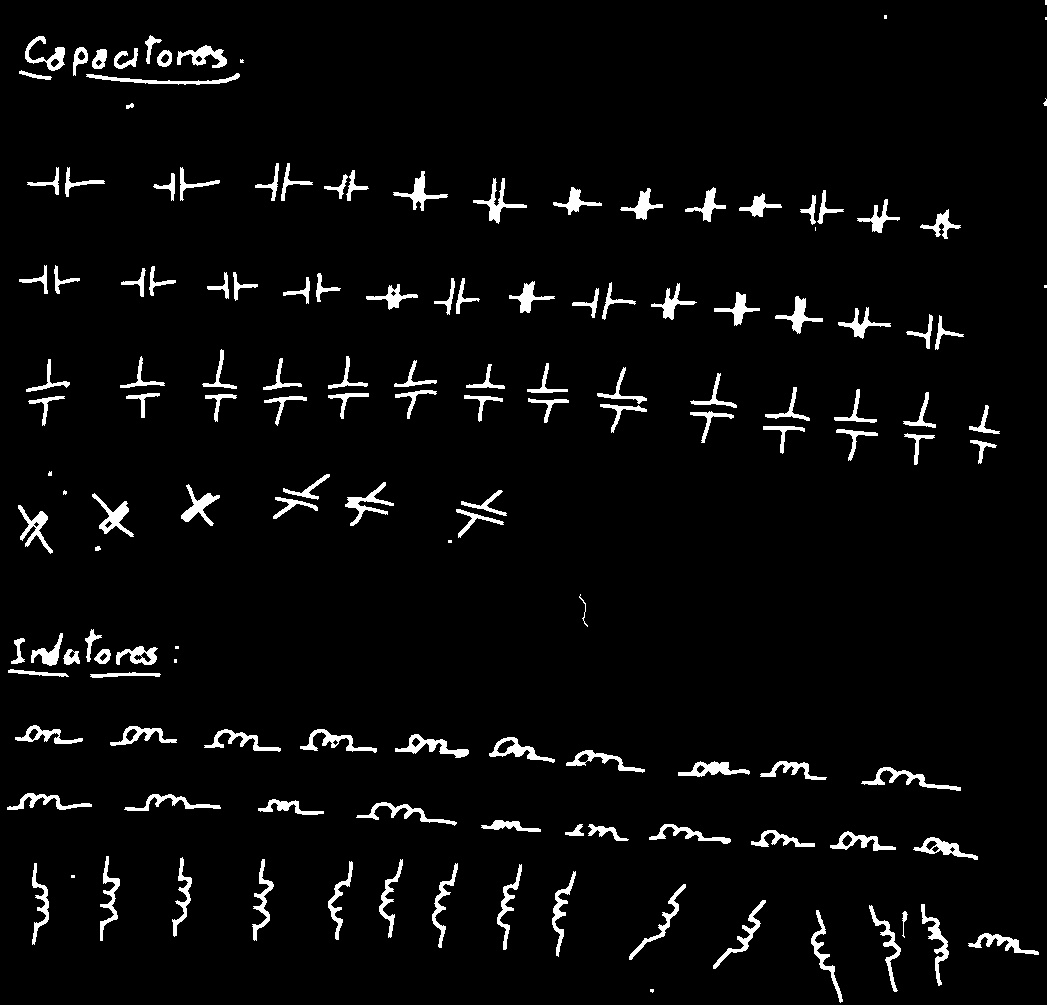 Capacitores.
Indutores: